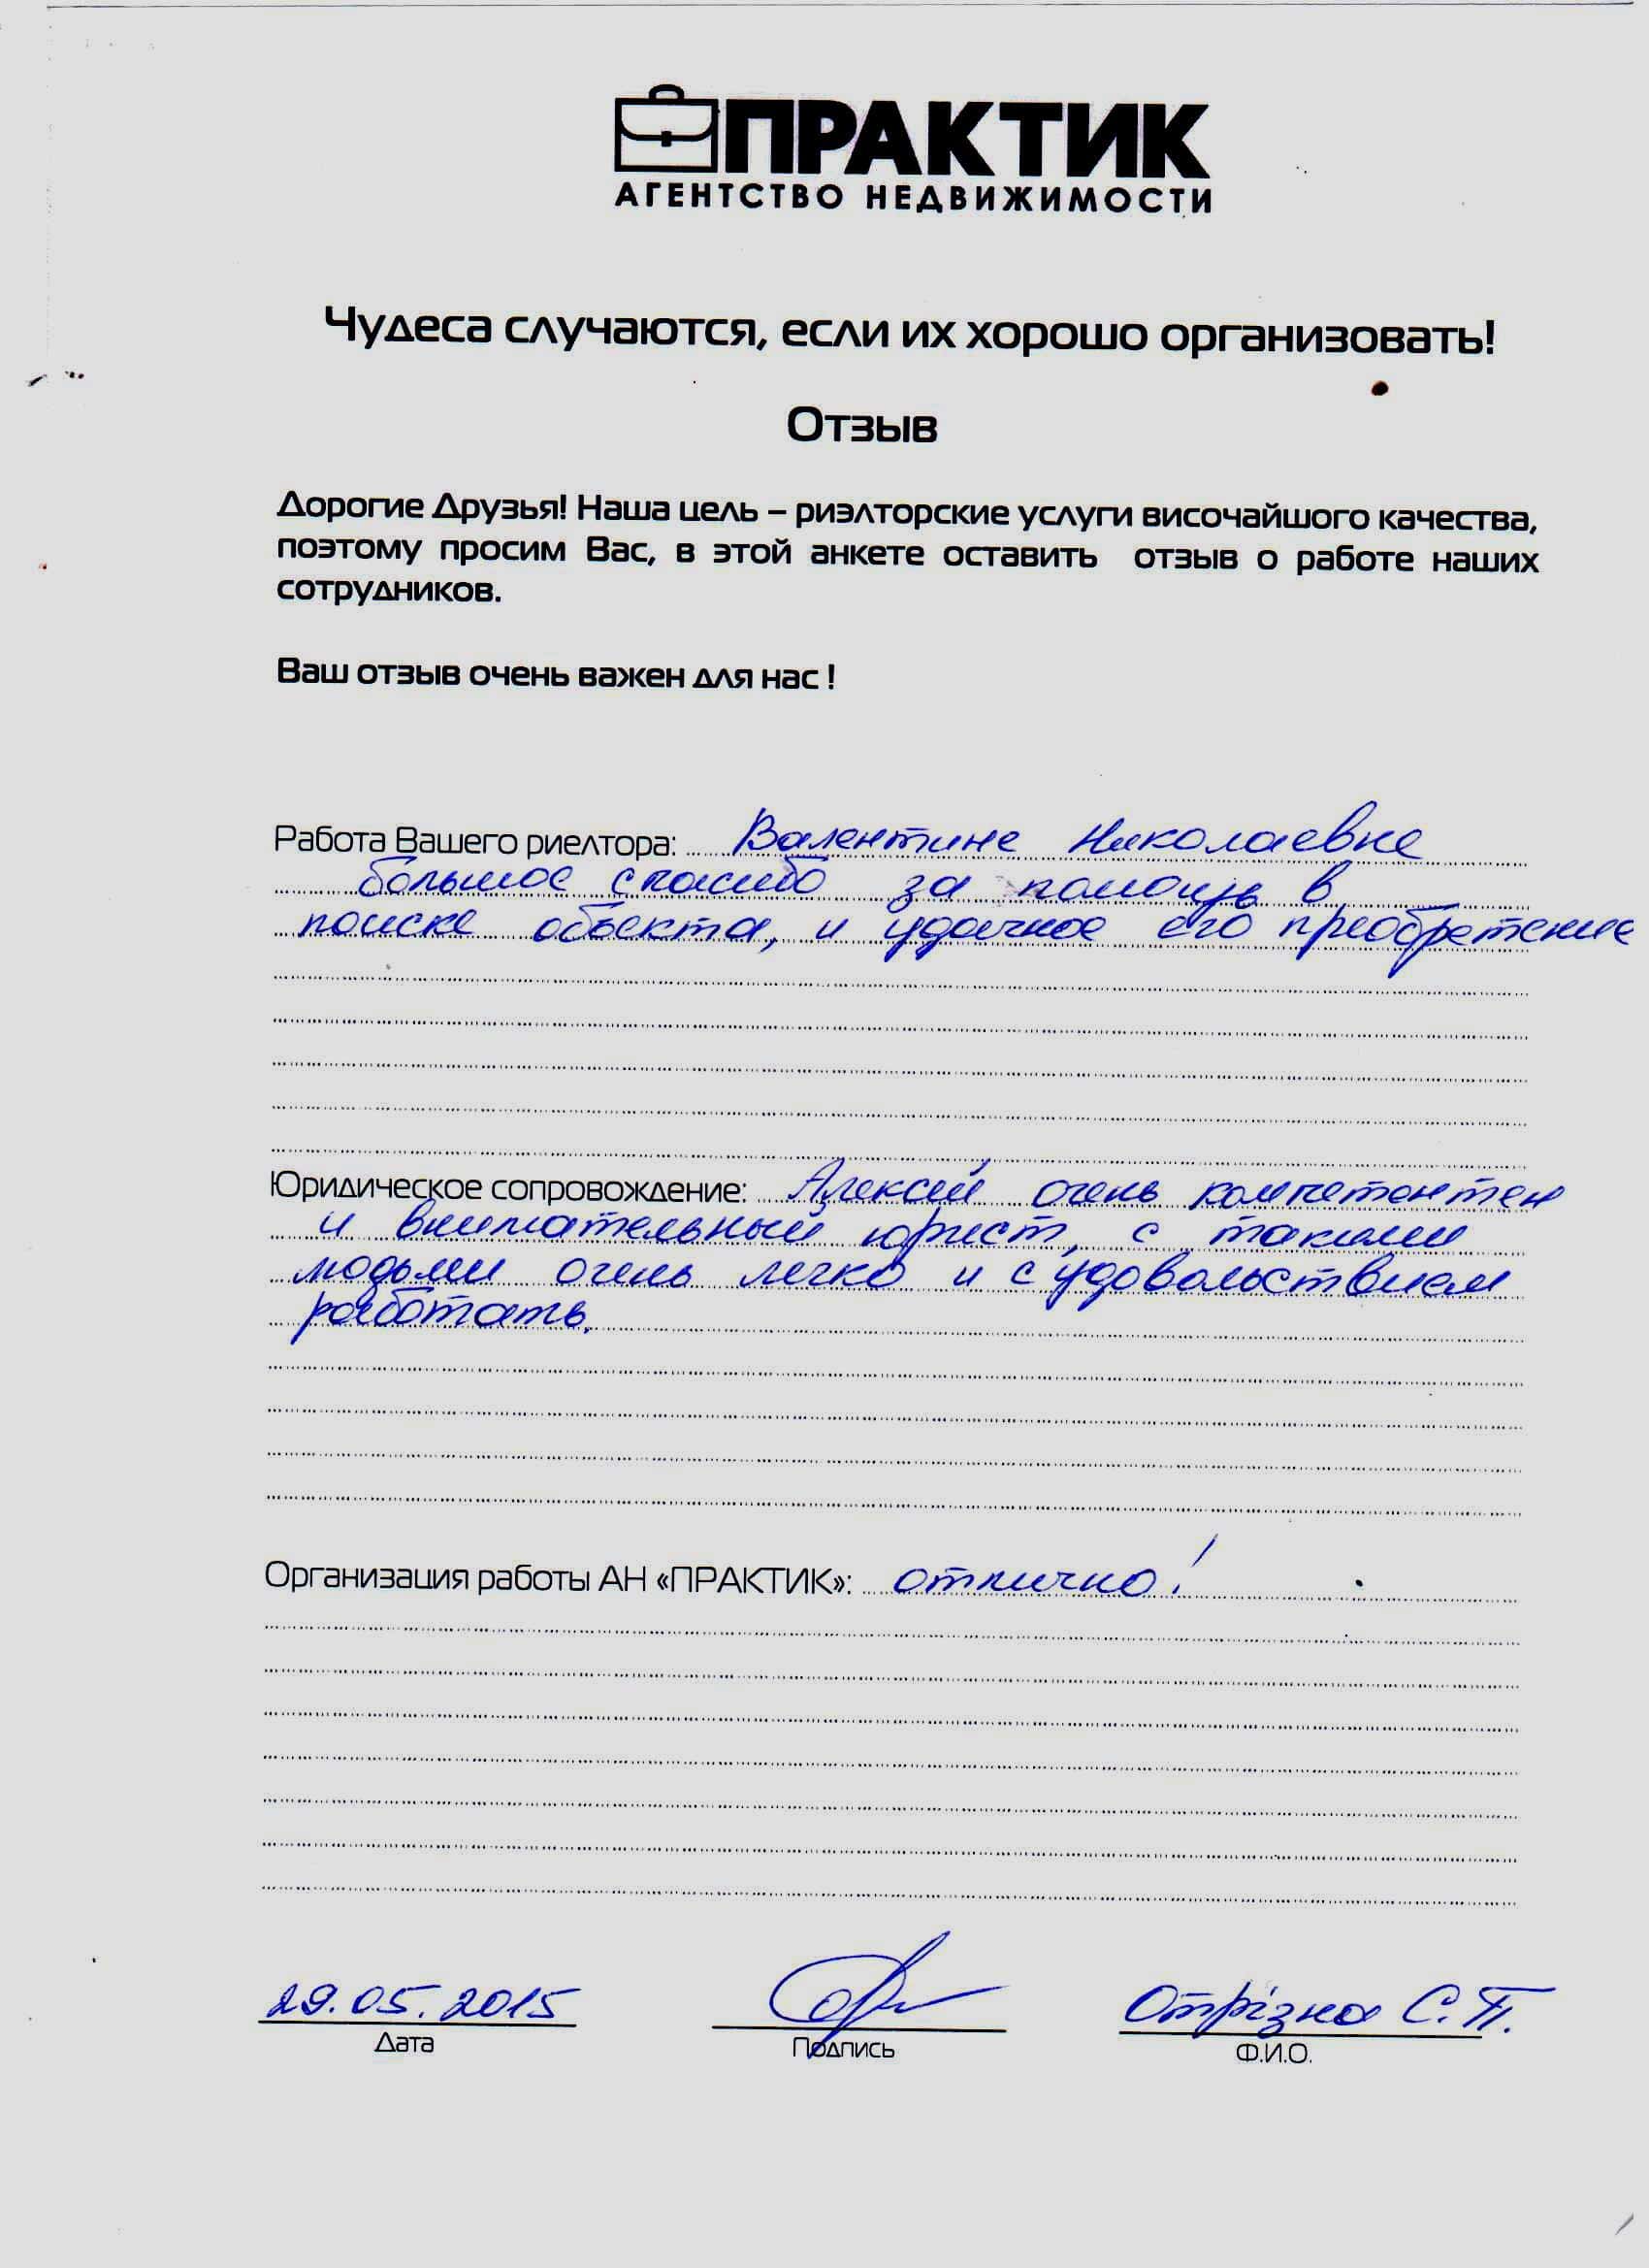 ПРАКТИК
АГЕНТСТВО НЕДВИЖИМОСТИ
Чудеса случаются, если их хорошо организовать!
Отзыв
Дорогие Друзья! Наша цель – риэлторские услуги височайшого качества,
поэтому просим Вас, в этой анкете оставить отзыв о работе наших
сотрудников.
Ваш отзыв очень важен для нас !
Работа Вашего риелтора: Валентине Николаевне
большое спасибо за помощь в
поиске объекта, и удачное его преобретение
Юридическое сопровождение: Алексей очень компетентен
и внимательный юрист, с такими
людьми очень легко и с удовольствием
работать.
Организация работы АН «ПРАКТИК»: отлично!
29.05.2015 Отрізна С.П.
Дата Подпись Ф.И.О.